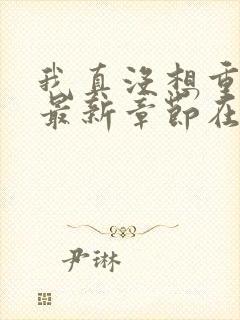 我真没想重
最新章节在
尹琳